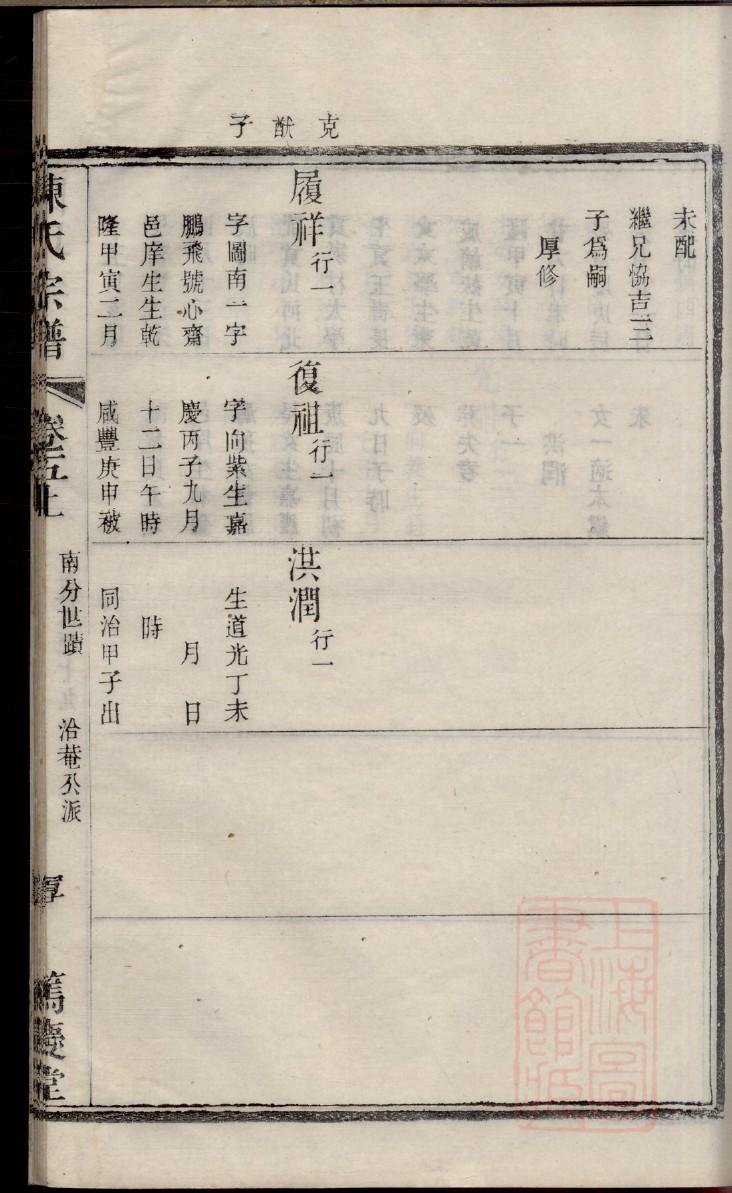 克猷子
未配
繼兄恊吉三
子爲嗣
厚修
履祥行一
字圖南一字
鵬飛號心齋
邑庠生生乾
隆甲寅二月
復祖行一
字向紫生嘉
慶丙子九月
十二日午時
咸豐庚申被
洪潤行一
生道光丁未
月日
時
同治甲子出
陳氏宗譜
卷五上
南分世蹟
洽菴公派
篤慶堂
上海圖書館藏